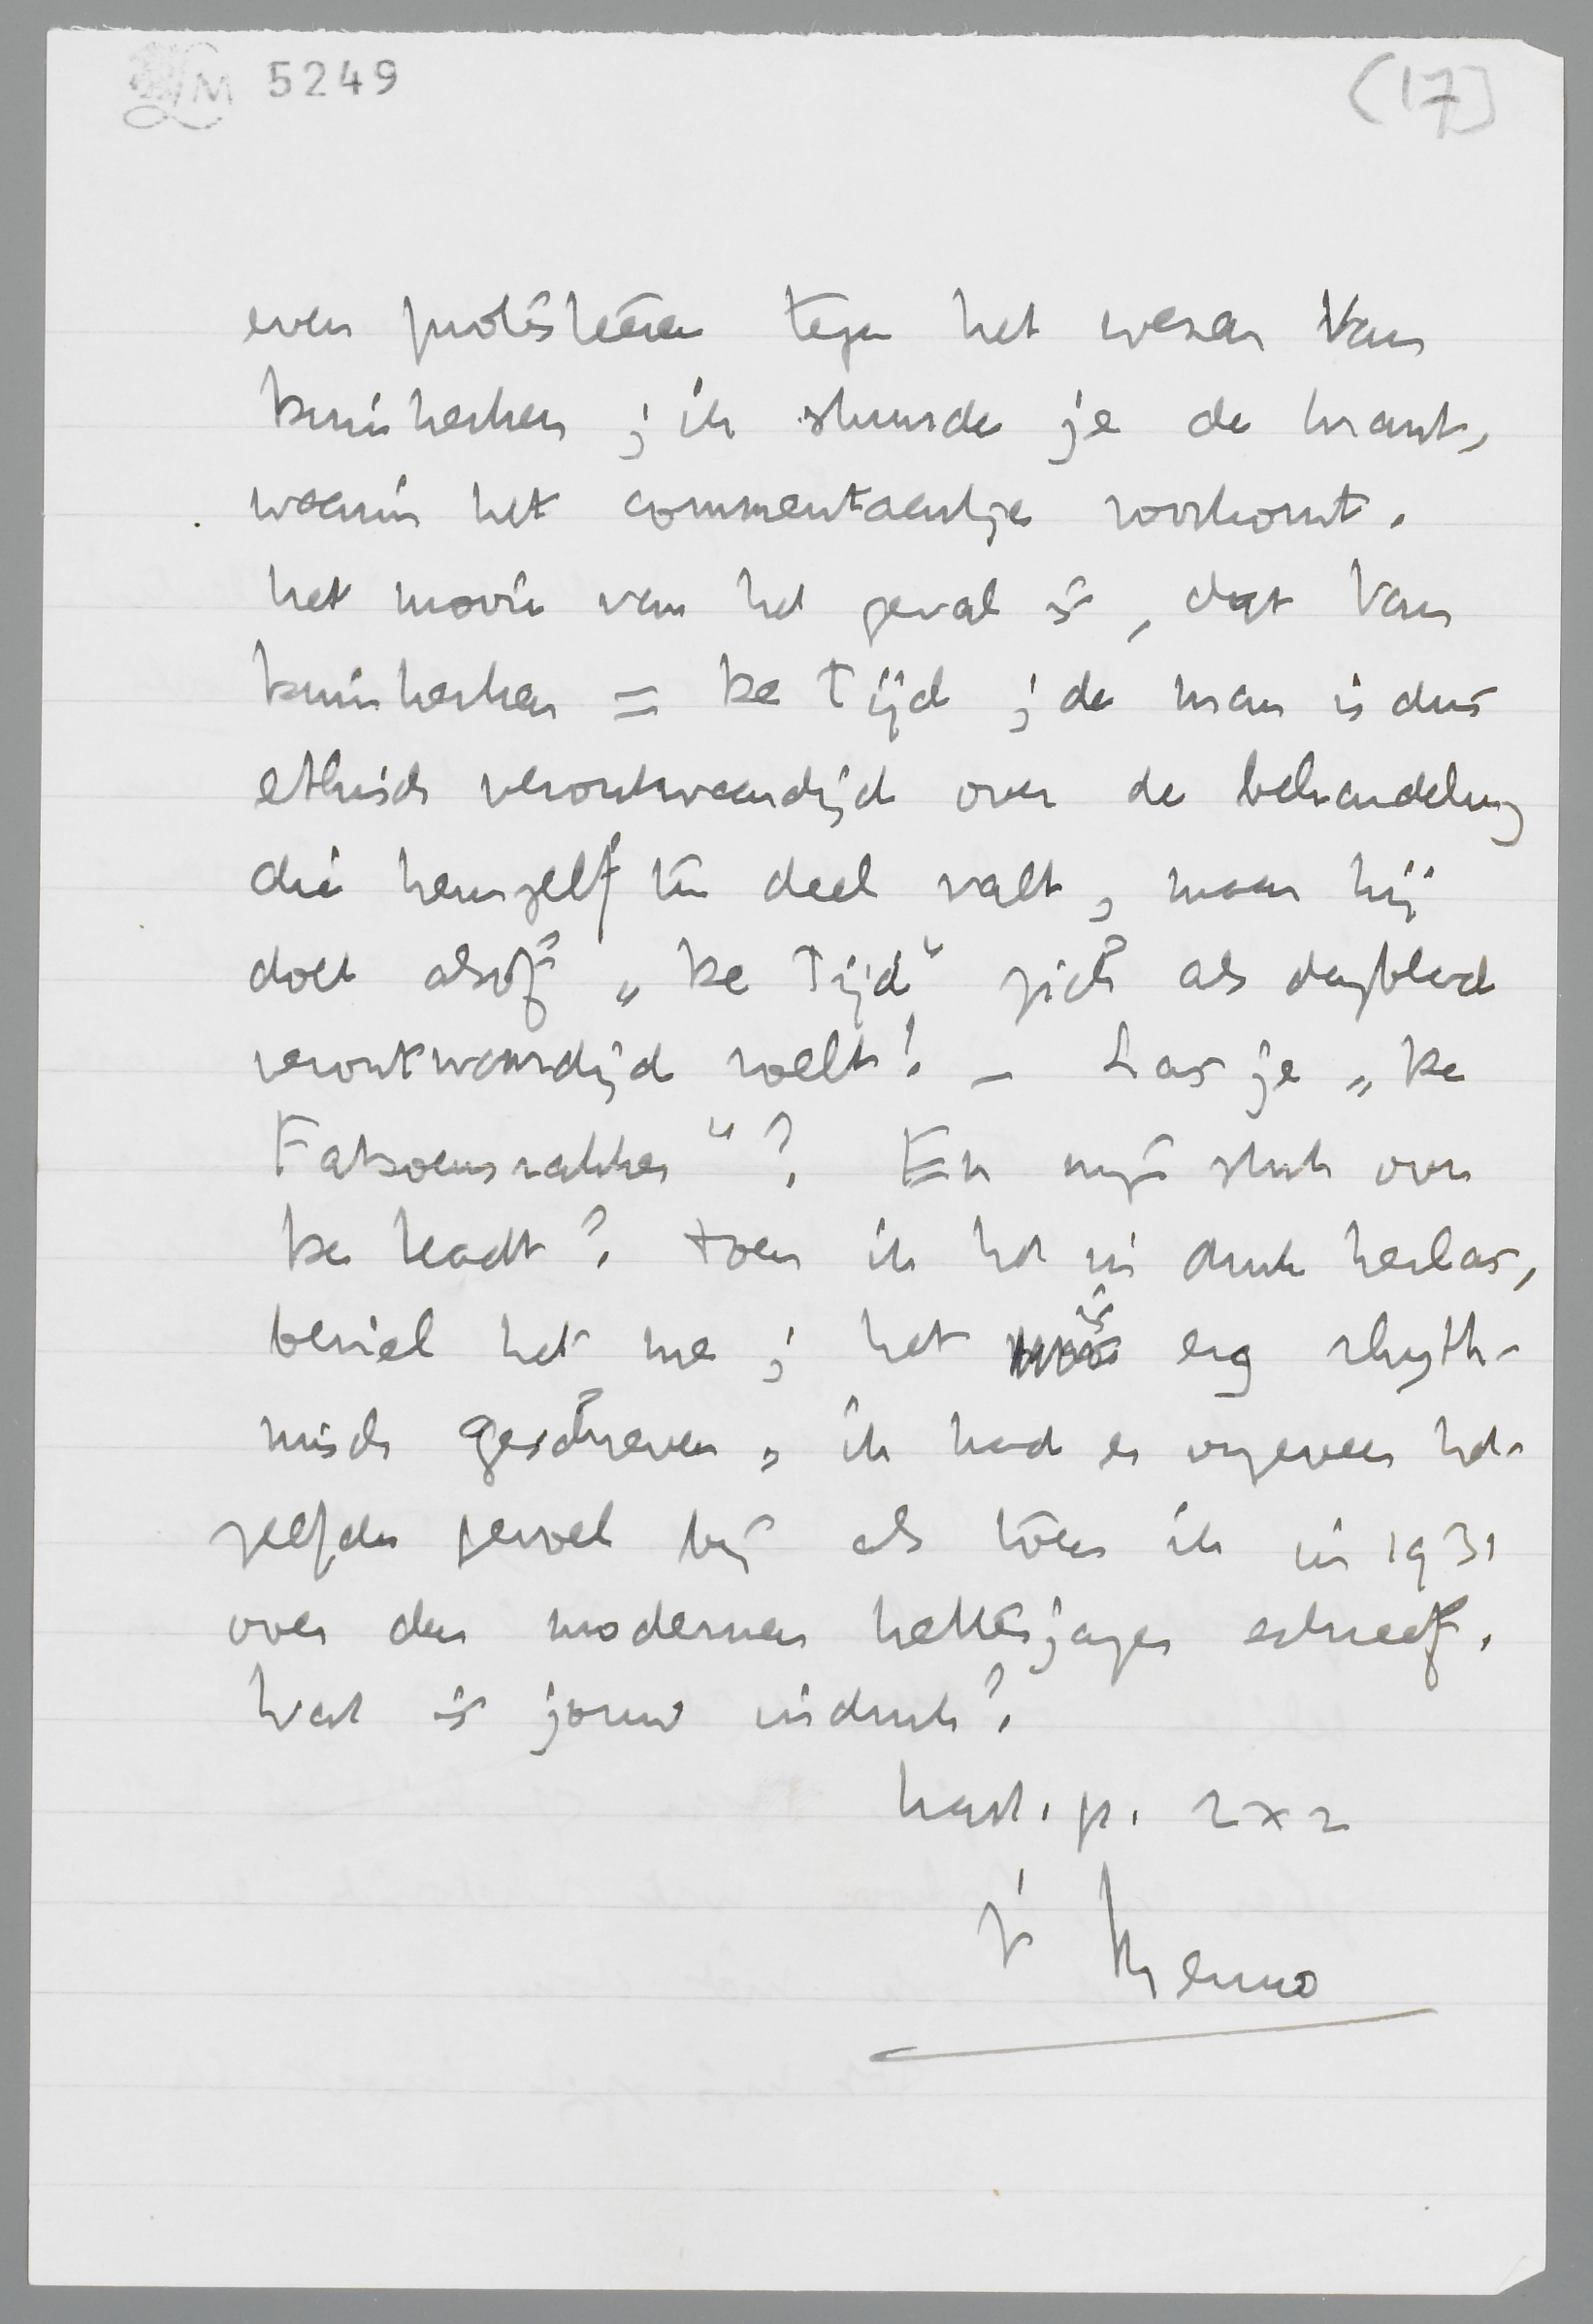 LM 5249
(17)
even protesteeren tegen het wezen Van
Duinkerken; ik stuurde je de krant,
waarin het commentaartje voorkomt.
Het mooie van het geval is, dat Van
Duinkerken = De Tijd; de man is dus
ethisch verontwaardigd over de behandeling
die hemzelf ten deel valt, maar hij
doet alsof „De Tijd" zich als dagblad
verontwaardigd voelt! — Las je „De
Fatsoensrakker"? En mijn stuk over
De Kadt? Toen ik het in druk herlas,
beviel het me; het is erg rhyth-
misch geschreven, ik had er ongeveer het-
zelfde gevoel bij als toen ik in 1931
over den modernen ketterjager schreef.
Wat is jouw indruk?
hart. gr. 2 x 2
je Menno